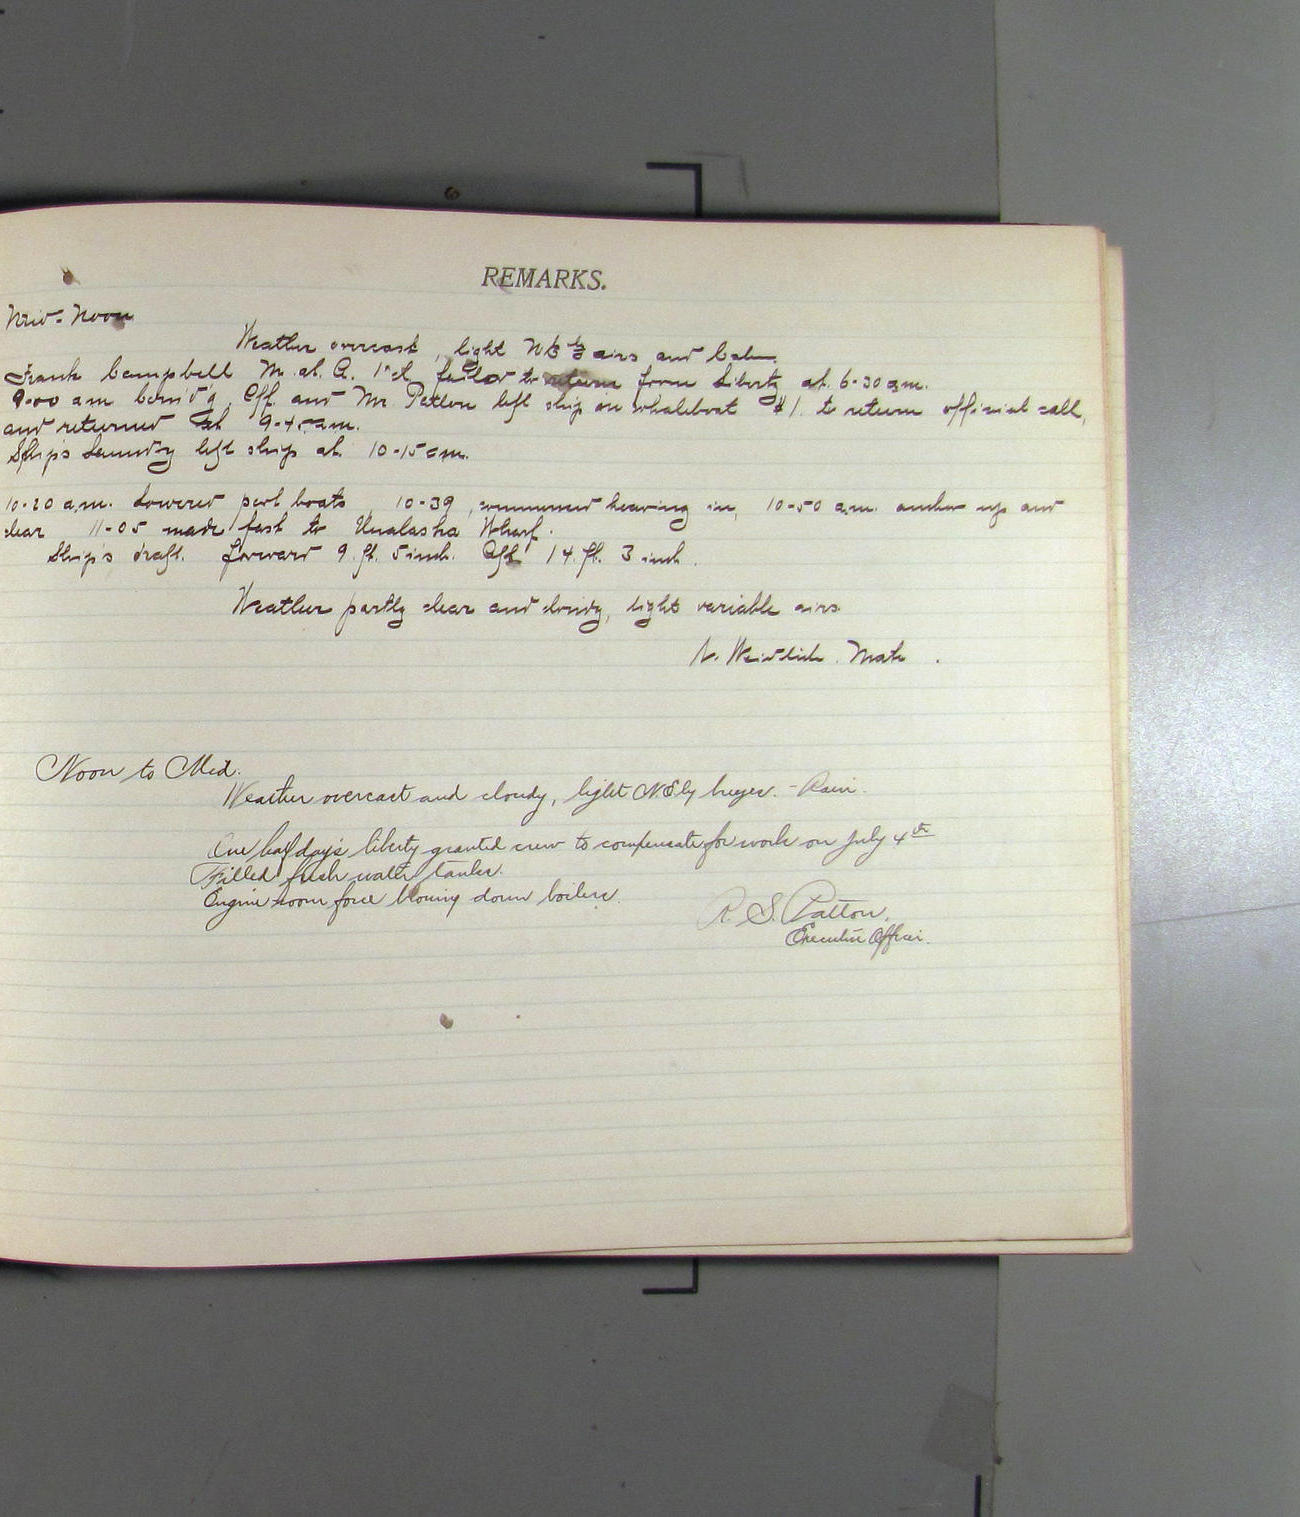 REMARKS.
Mid-Noon
Weather overcast, light airs and calm.
Frank Campbell M. at A. 1st failed to return from Liberty at 6-30 am.
9-00 am Comd'g. Off. and Mr. Patton left ship in whaleboat #1. to return official call,
and returned at 9-45 am.
Ships Laundry left ship at 10-15 am.
10-20 a.m. Lowered port boats 10-39, commenced heaving in, 10-50 a.m. anchor up and
clear 11-05 made fast to Unalaska Wharf.
Ships draft. forward 9. ft. 5 inch. Aft 14. ft. 3 inch.
Weather partly clear and cloudy, light variable airs
Weidlich. Mate.
Noon to Mid.
Weather overcast and cloudy, light breeze. - Rain.
One half day's liberty granted crew to compensate for work on July 4th
Filled fresh water tanks.
Engine room force blowing down boilers.
R. S. Patton.
Executive Officer.